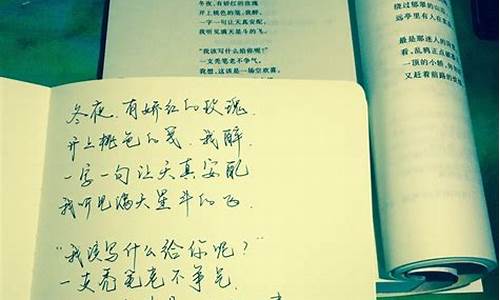 冬夜,有娇红的玫瑰
开上桃色的笺,我醉,
一字一句让天真安配,
我听见满天星斗的飞。
“我该写什么给你呢?”
一支秃笔老不争气。
我想,这该是一场空欢喜。
绕过郁郁的山
远亭里有人在
最是那迷人的
看,乱鸦正点
一顶的小轿,
又赶着前路的
冬夜,有娇红的玫瑰,
开上桃色的笺,我醉,
一字一句让天真安配
我听见满天星斗的飞,
“我该写什么给你呢?”
一支秃笔老不争气,